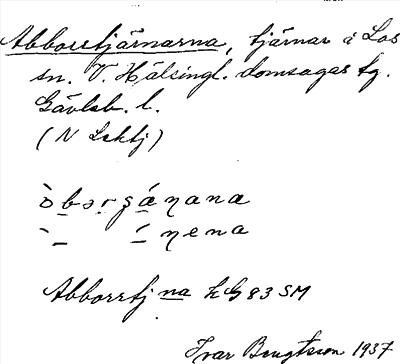 Abborrtjärnarna, tjärnar i Los
sn. V. Hälsingl. domsagas tg.
Gävleb. l.
(N Lektj)
òbərgáŋana
ŋena
Abborrtj na hG 83 SM
Ivar Bengtsson 1937